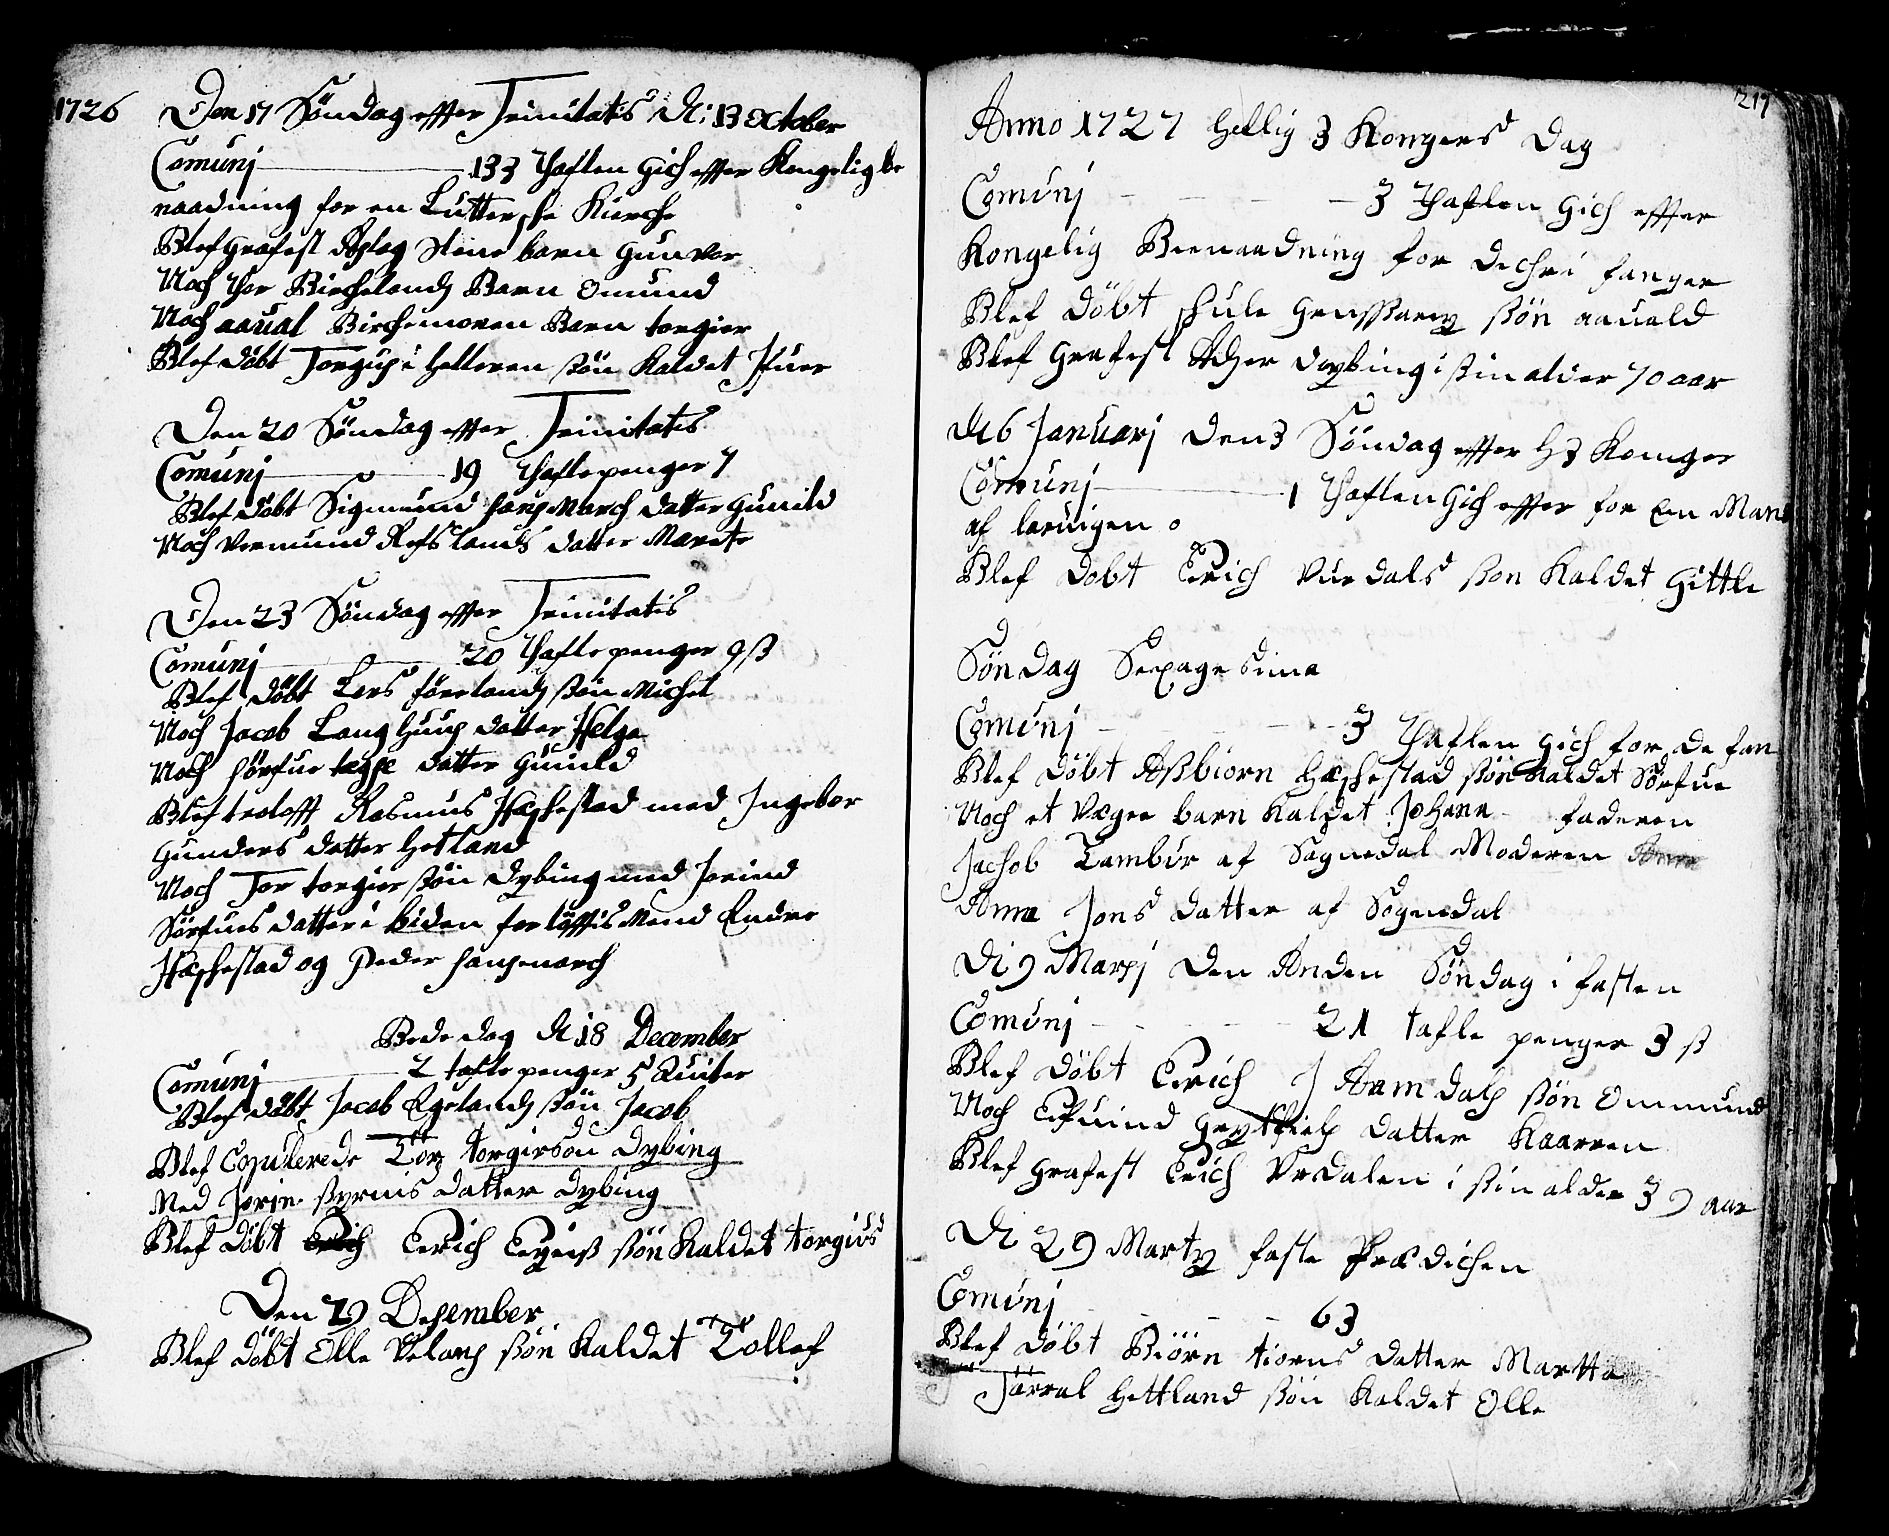 1726
Den 17 Söndag effter Trinitatis d: 13 October
Comunj 133 Thaflen gich effter Kongelig be
naadning for en Luttersche Kierche
Blef grafest Aslag Stene barn gunvor
Noch Thor Birchelands Barn Omund
Noch aaual Birchemoren Barn torgier
Blef döbt Torgius i Helleren sßön kaldet Ifuer
Den 20 Söndag effter Trinitatis
Comunj 19 Thaflepenger 7
Blef döbt Sigmund hansMarch datter gunild
Noch Vermund Refslands datter Marete
Den 23 Söndag effter Trinitatis
Comunj 20 Thaflepenger 9 ß
Blef döbt Lars förelands ßön Michel
Noch Jacob Langhuus datter Helga
Noch Sörfue datter gunild
Blef trolofft Rasmus Hæskestad med Ingebor
gunders datter Hetland
Noch Tor torgier ßön Dybing med Jorind
Sörfues datter i Liden forlöfftis Mend Endre
Hæskestad og Peder hansmarch
Bededag d 18 December
Comunj 2 taflepenger 5 Quiter
Blef döbt Jacob Egelands ßön Jacob
Blef Copulerede Tör torgirsön Dybing
Med Jorin ßyrnis datter Dybing
Blef döbt Erich Eeyeiß ßön kaldet torgius
Den 29 Desember
Blef döbt Olle Velans ßön kaldet Tollef
217
Anno 1727 Hellig 3 Kongers Dag
Comunj 3 Thaflen gich effter
Kongelig Beenaadning for fanger
Blef döbt skule ßön aauald
Blef grafest Dybing i ßin alder 70 aar
d 6 Januarj Den 3 Söndag effter H 3 Konger
Comunj 1 Thaflen gich effter for Een Man
af laruigen
Blef döbt Eerich Vurdals ßon kaldet gittle
Söndag Sexagesima
Comunj 3 Thaflen gich for de fan
Blef döbt Aßbiorn Hæskestad ßön kaldet Sörfue
Noch et Vægre barn kaldet Johann faderen
Jachob Tambur af Sognedal Moderen
Anna Jons datter af Sognedal
Di 9 Marsj Den Anden Söndag i fasten
Comunj 21 tafle penger 3 ß
Blef döbt Eerich I Aamdals ßön Ommund
Noch datter Kaarren
Blef grafest Erich Urdalen i ßin alder 39 aar
Di 29 Marty faste Prædichen
Comunj 63
Blef döbt Biörn tiorns datter Martta
Tarral Hettland ßön kaldet Olle